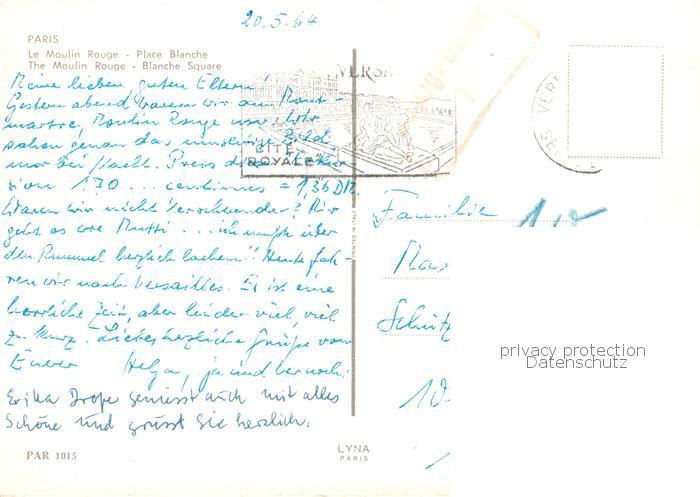 20.5.64
PARIS
Le Moulin Rouge - Place Blanche
The Moulin Rouge - Blanche Square
Meine lieben, guten Eltern!
Gestern abend waren wir am Mont-
martre, Moulin Rouge usw. Wir
sahen genau das umseitige Bild
nur bei Nacht. Preis dieser
sion 170... centimes = 1,36 DM.
Waren wir nicht Verschwender? Mir
geht es wie Mutti... ich mußte über
den Rummel herzlich lachen!! Heute fah-
ren wir nach Versailles. Es ist eine
herrliche Zeit, aber leider viel, viel
zu kurz. Liebe herzliche Grüße von
Eurer Helga,
Erika Drope geniesst auch mit alles
Schöne und grüsst Sie herzlich.
PAR 1015
VERSA
CITÉ
ROYALE
VERS
PRINTED IN ITALY
Familie
Schütz
10
privacy protection
Datenschutz
LYNA
PARIS